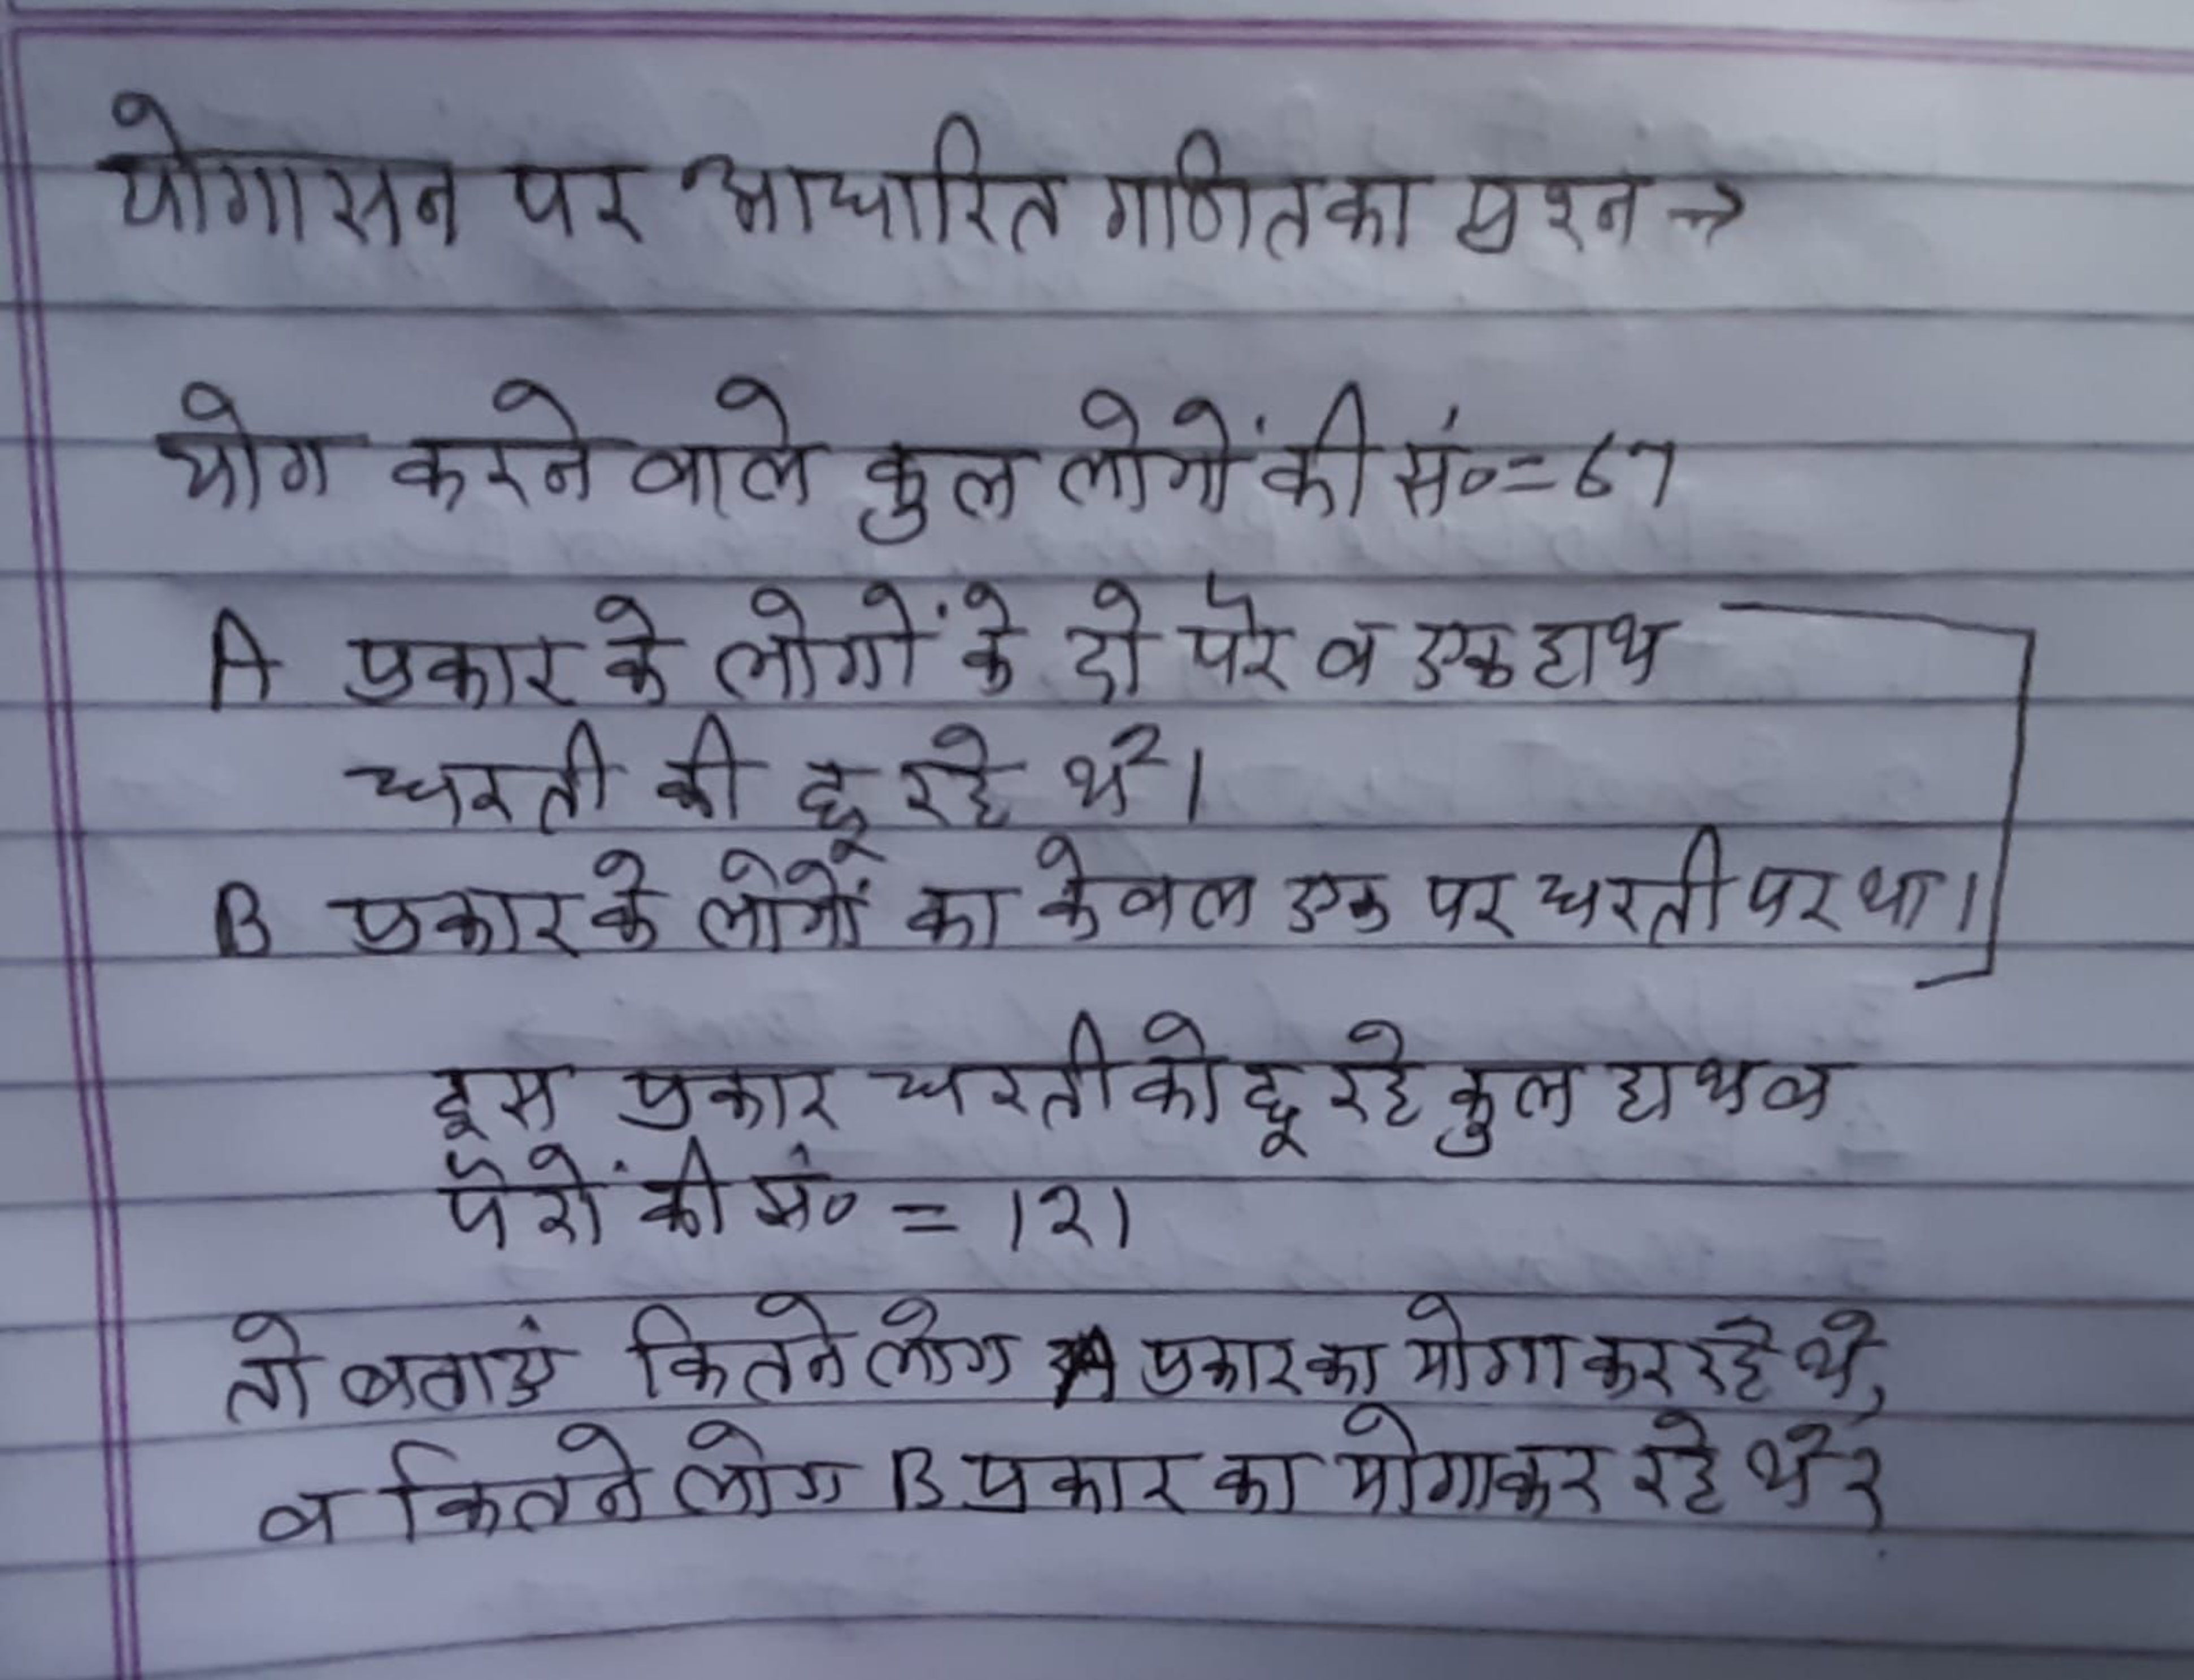 योगासन पर आधारित गणित का प्रश्न →
योग करने वाले कुल लोगों की सं० = 67
A प्रकार के लोगों के दो पैर व एक हाथ
धरती को छू रहे थे।
B प्रकार के लोगों का केवल एक पर धरती पर था।
इस प्रकार धरती को छू रहे कुल हाथ व
पैरों की सं० = 121
तो बताएं कितने लोग A प्रकार का योगा कर रहे थे,
व कितने लोग B प्रकार का योगा कर रहे थे?